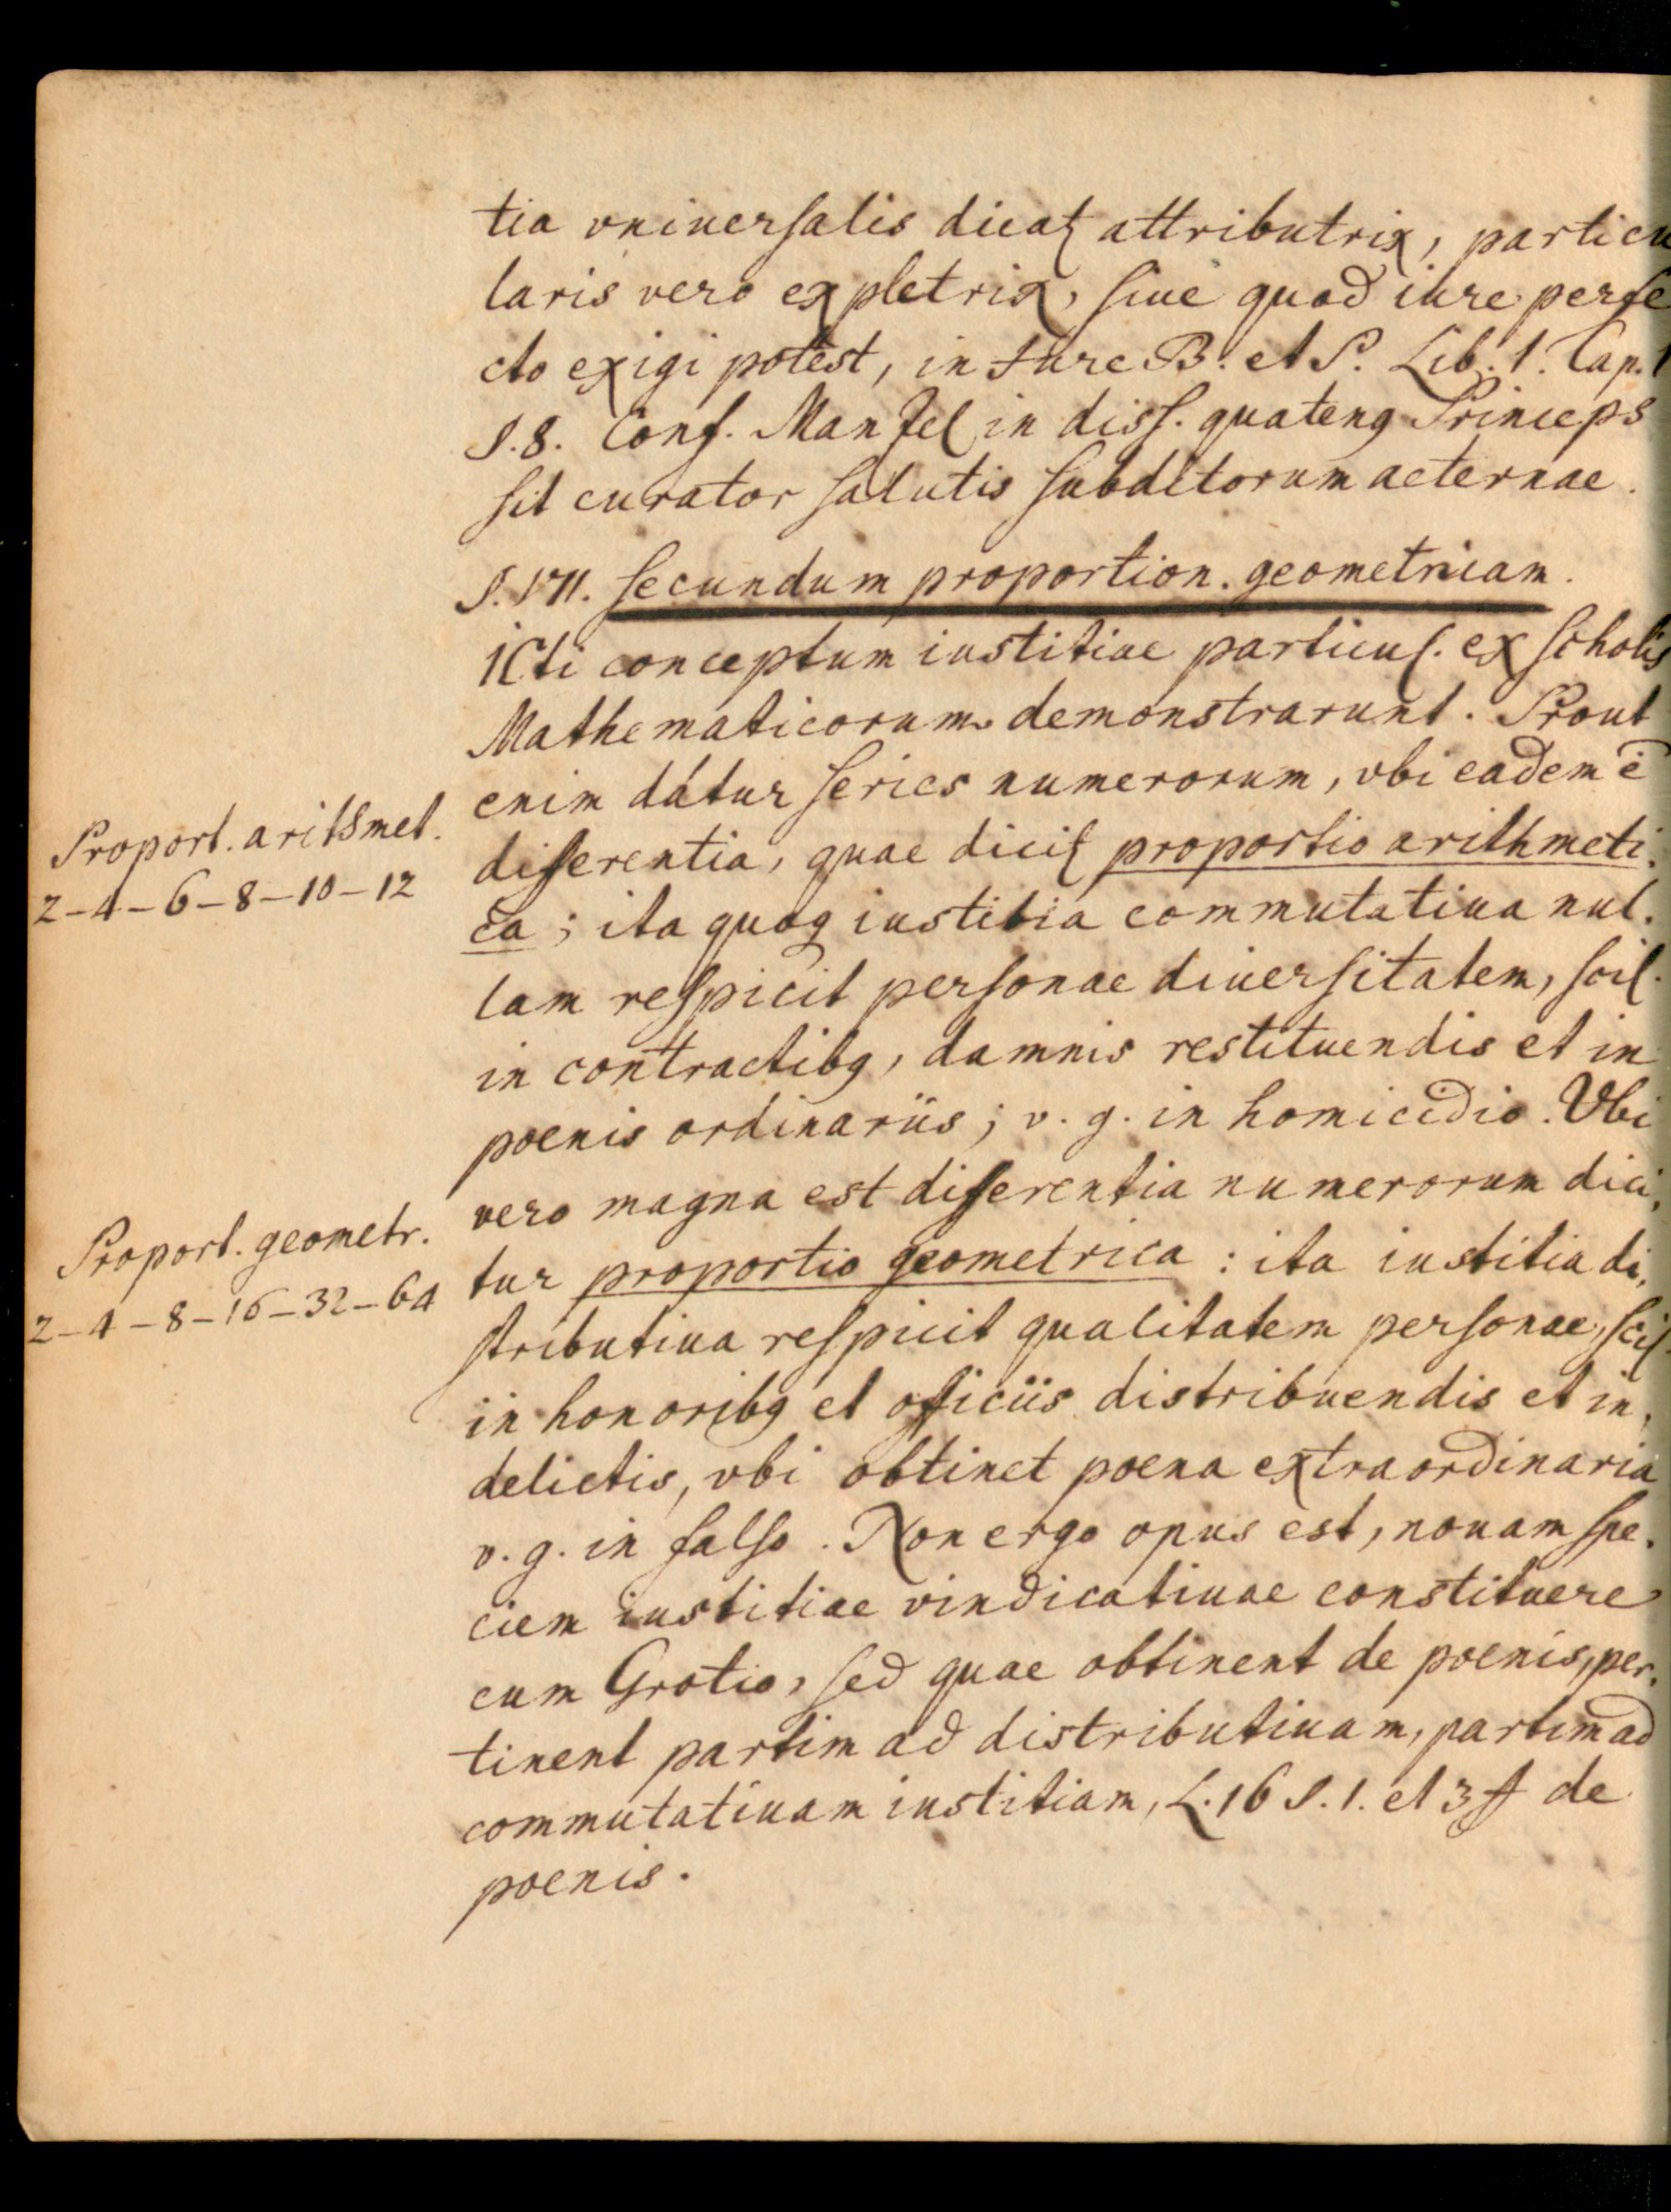 tia vniuersalis dicatꝛ attributrix, particu
laris vero expletrix, siue quod iure perfe
cto exigi potest, in Iure B. et P. Lib. 1. Cap. 1
§. 8. Conf. Manzel in diss. quatenq Princeps
sit curator salutis subditorum aeternae.
§. VII. secundum proportion. geometricam.
ICti conceptum iustitiae particul. ex scholis
Mathematicorum demonstrarunt. Prout
enim dátur series numerorum, vbi eadem ē
Proport. arithmet.
differentia, quae dicitꝛ proportio arithmeti-
2-4-6-8-10-12
ca; ita quoq iustitia commutatiua nul-
lam respicit personae diuersitatem, scil.
in contractibq, damnis restituendis et in
poenis ordinariis; v. g. in homicidio. Vbi
vero magna est differentia numerorum dici-
Proport. geometr.
tur proportio geometrica: ita iustitia di-
2-4-8-16-32-64
stributiua respicit qualitatem personae, scil.
in honoribq et officiis distribuendis et in
delictis, vbi obtinet poena extraordinaria
v. g. in falso. Non ergo opus est, nouam spe-
ciem iustitiae vindicatiuae constituere
cum Grotio, sed quae obtinent de poenis, per-
tinent partim ad distributiuam, partim ad
commutatiuam iustitiam, L. 16 §. 1. et 3 ff de
poenis.